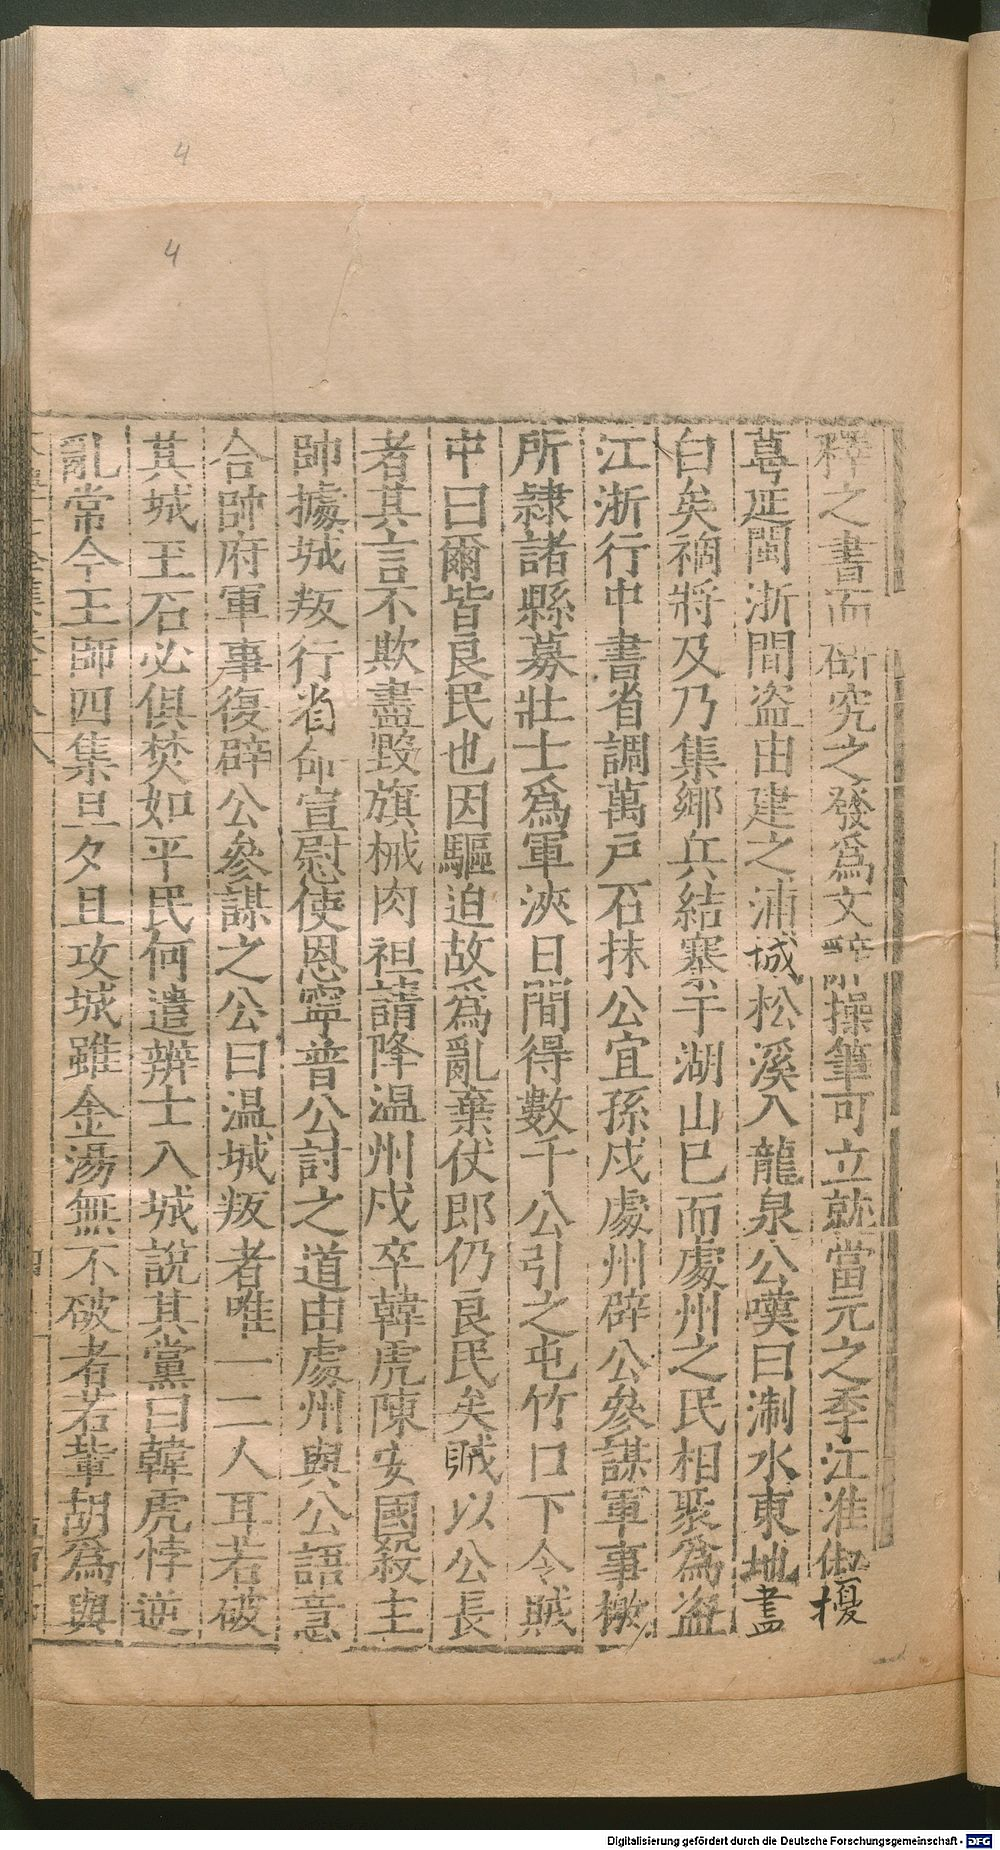 4
4
釋之書而研究之發爲文辭操筆可立就當元之季江淮俶擾
蔓延閩浙間盗由建之浦城松溪入龍泉公嘆曰淛水東地盡
白矣禍將及乃集鄉兵結寨于湖山已而處州之民相聚爲盗
江浙行中書省調萬戸石抹公宜孫戍處州辟公參謀軍事檄
所隷諸縣募壯士爲軍浹日間得數千公引之屯竹口下令賊
中曰爾皆良民也因驅迫故爲亂棄仗即仍良民矣賊以公長
者其言不欺盡毀旗械肉袒請降温州戍卒韓虎陳安國殺主
帥據城叛行省命宣慰使恩寧普公討之道由處州與公語意
合帥府軍事復辟公參謀之公曰温城叛者唯一二人耳若破
其城玉石必俱焚如平民何遣辨士入城說其黨曰韓虎悖逆
亂常今王師四集旦夕且攻城雖金湯無不破者若輩胡爲與
Digitalisierung gefördert durch die Deutsche Forschungsgemeinschaft - DFG